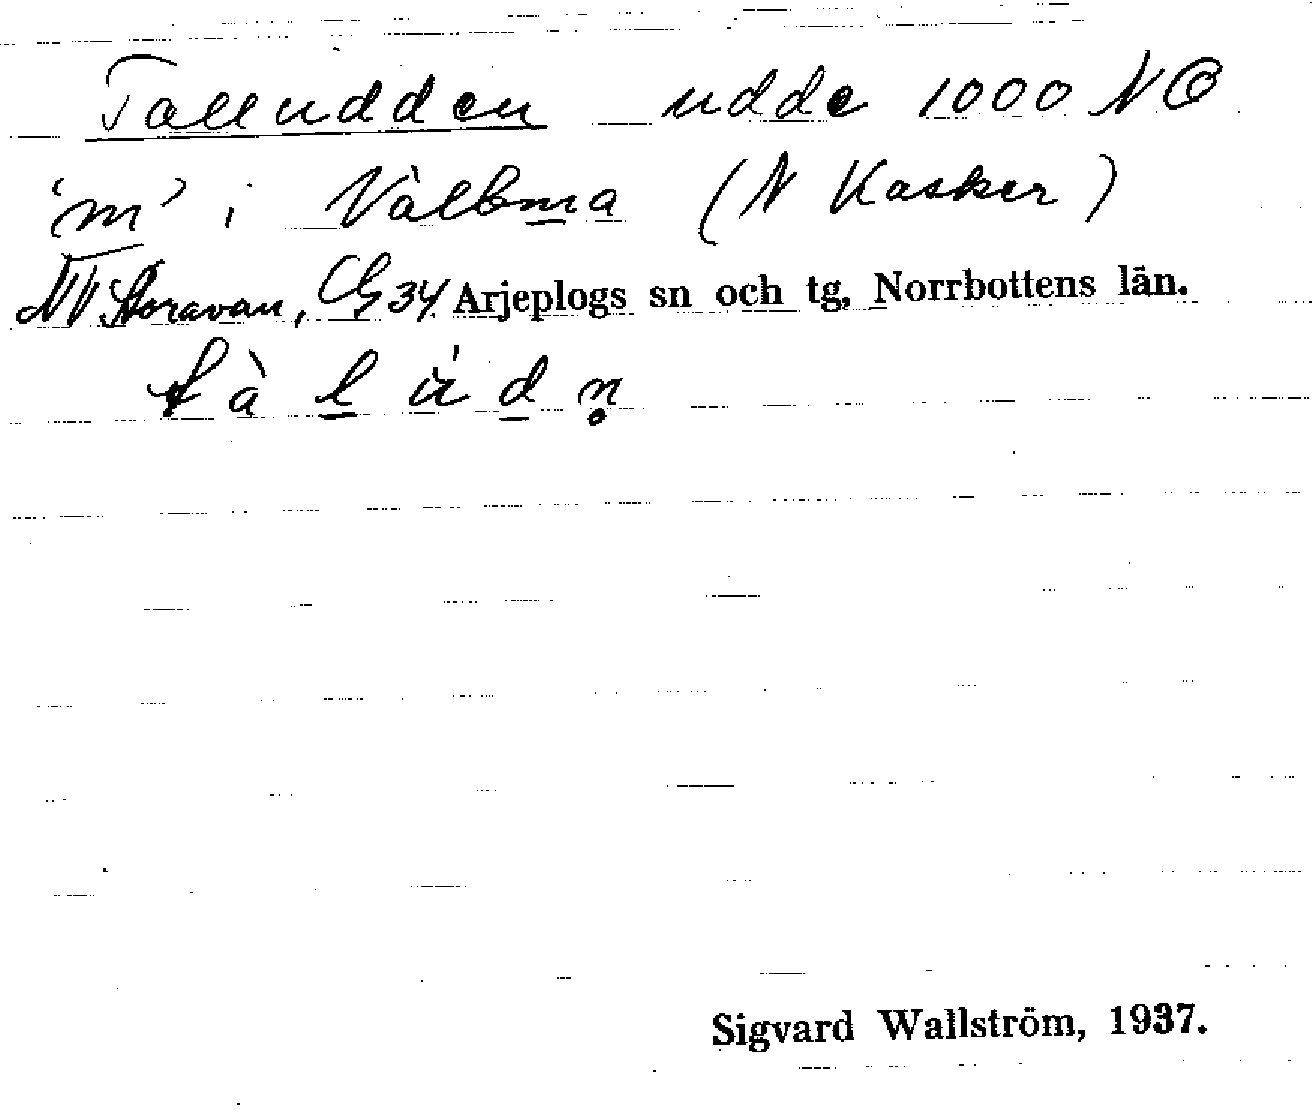 Talludden udde 1000 NO
'm' i Vàlbma (N Kasker)
NV Storavan, G34 Arjeplogs sn och tg, Norrbottens län.
tàlúdn̥
Sigvard Wallström, 1937.